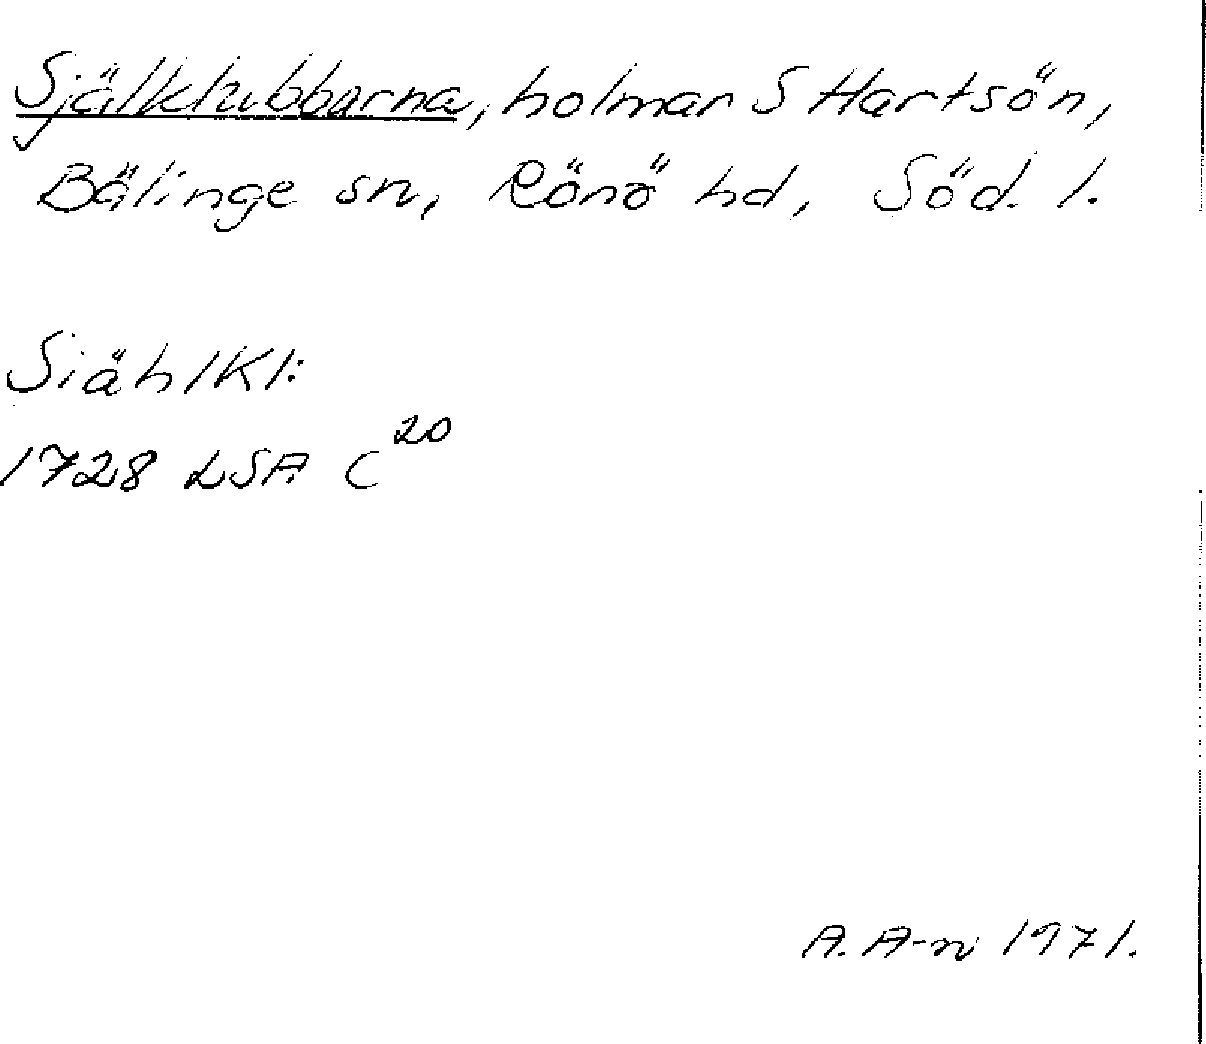 Själklubbarna, holmar S Hartsön,
Bälinge sn, Rönö hd, Söd. l.
SiählKl:
1728 LSA C20
A. A-n 1971.